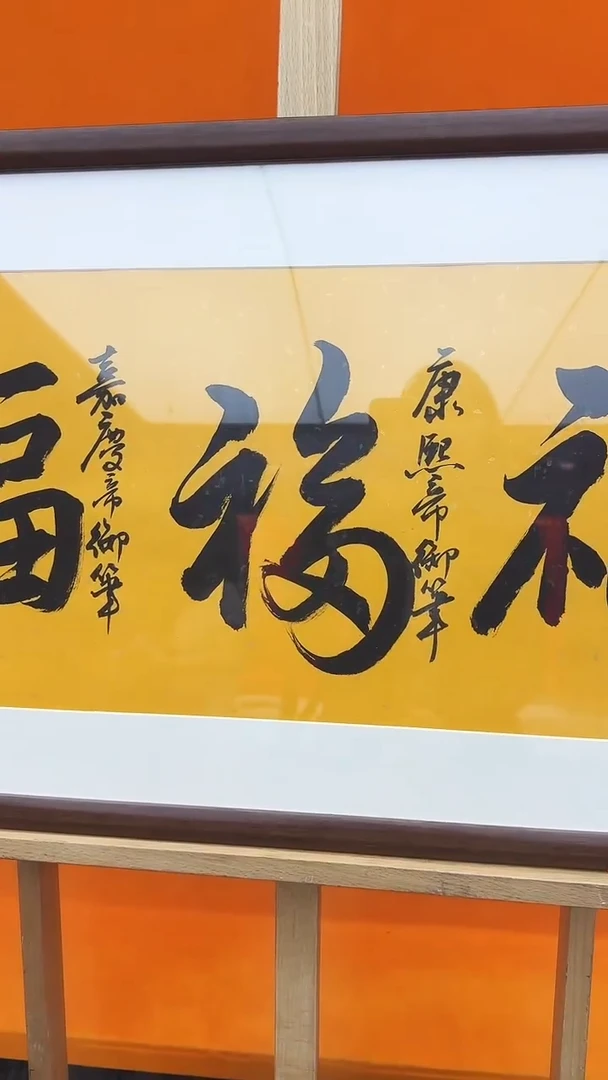 康熙帝御筆
福
嘉慶帝御筆
福